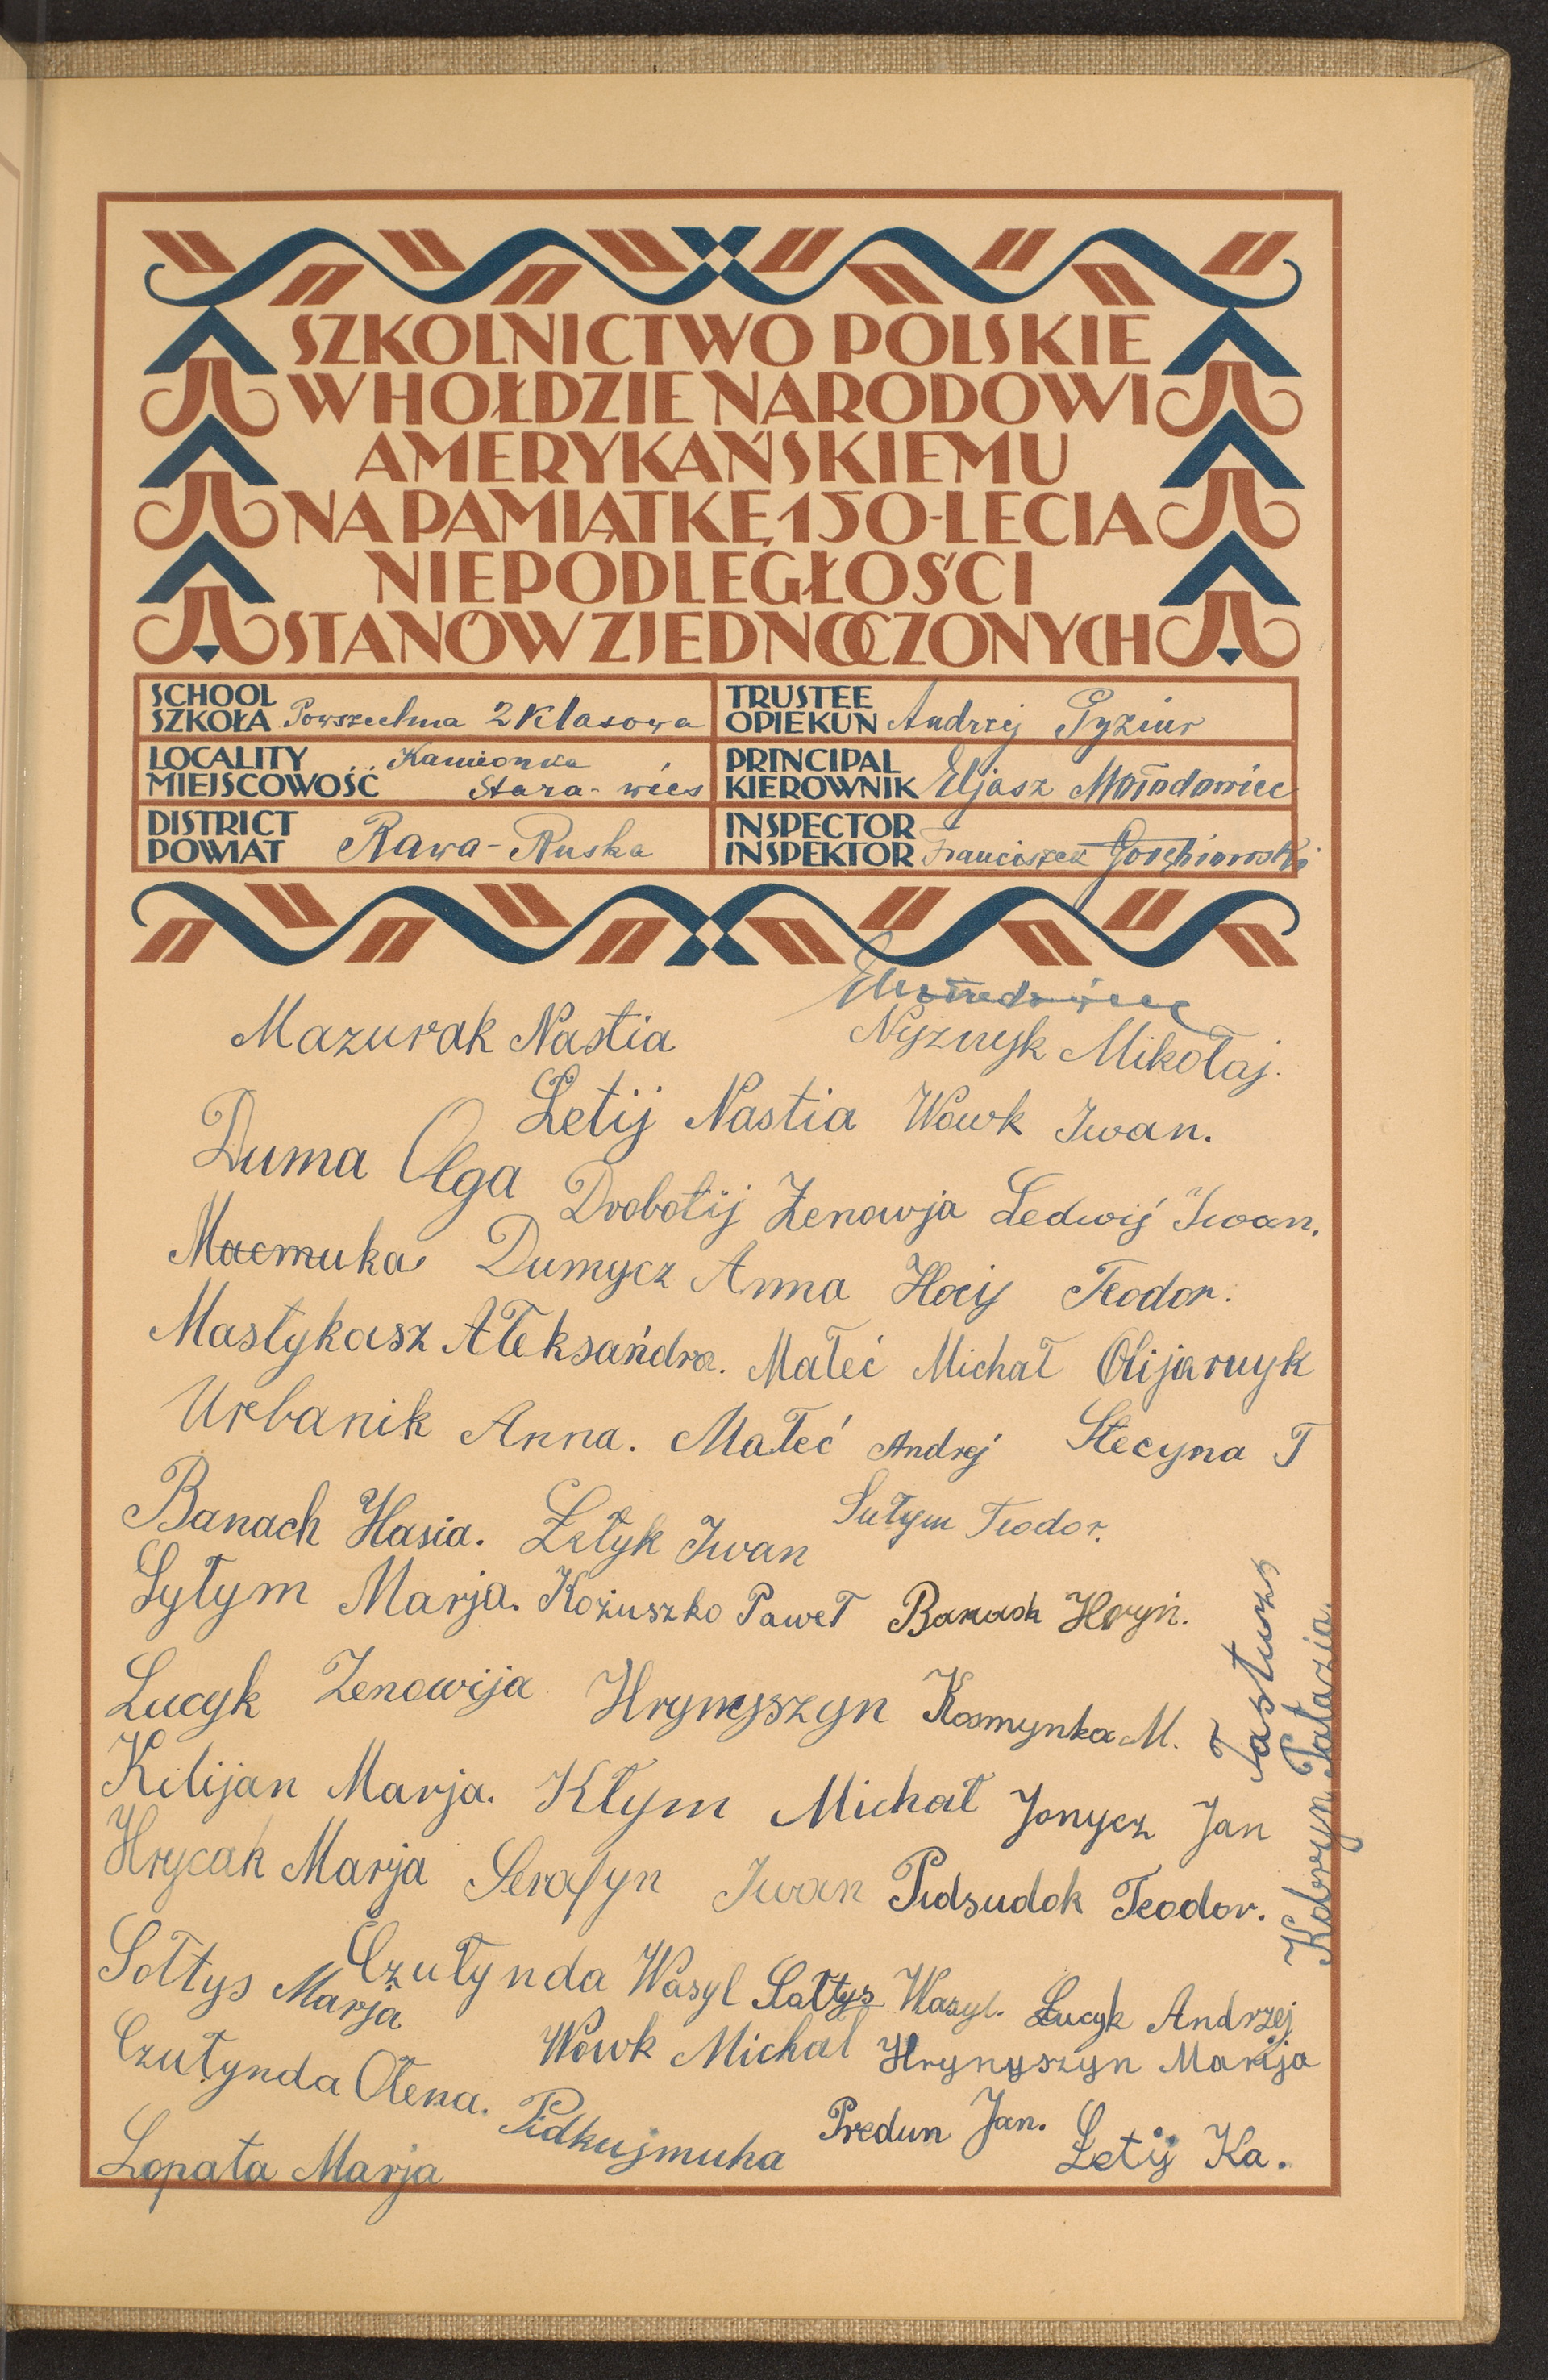 SZKOLNICTWO POLSKIE
W HOŁDZIE NARODOWI
AMERYKAŃSKIEMU
NA PAMIĄTKĘ 150-LECIA
NIEPODLEGŁOŚCI
STANÓW ZJEDNOCZONYCH
SCHOOL
SZKOŁA Powszechna 2 klasowa
TRUSTEE
OPIEKUN Andrzej Pyziur
LOCALITY
MIEJSCOWOŚĆ Kamionka
Stara-wieś
PRINCIPAL
KIEROWNIK Eljasz Mołodowiec
DISTRICT
POWIAT Rawa-Ruska
INSPECTOR
INSPEKTOR Franciszek Gołębiowski
EMołodowiec
Mazurak Nastia Nyżnyk Mikołaj.
Letij Nastia Wowk Iwan.
Duma Olga Drobotij Zenowja Ledwij Iwan.
Macmuka Dumycz Anna Hocij Teodor.
Mastykasz Ałeksańdra. Małeć Michał Olijarnyk
Urbanik Anna. Małeć Andrej Stecyna T
Banach Hasia. Łetyk Iwan Sułym Teodor.
Syłym Marja. Kożuszko Paweł Banach Hryń.
Lucyk Zenowija Hrynyszyn Kosmynka M.
Kilijan Marja. Kłym Michał Jonycz Jan
Hrycak Marja Serafyn Iwan Pidsudok Teodor.
Sołtys Marja Czułynda Wasyl Sałtys Wasyl. Łucyk Andrzej
Czułynda Ołena. Wowk Michal Hrynyszyn Marija
Pidkujmuha Predun Jan. Łetij Ka.
Lopata Marja
Tasturs
Kobryn Patazia.